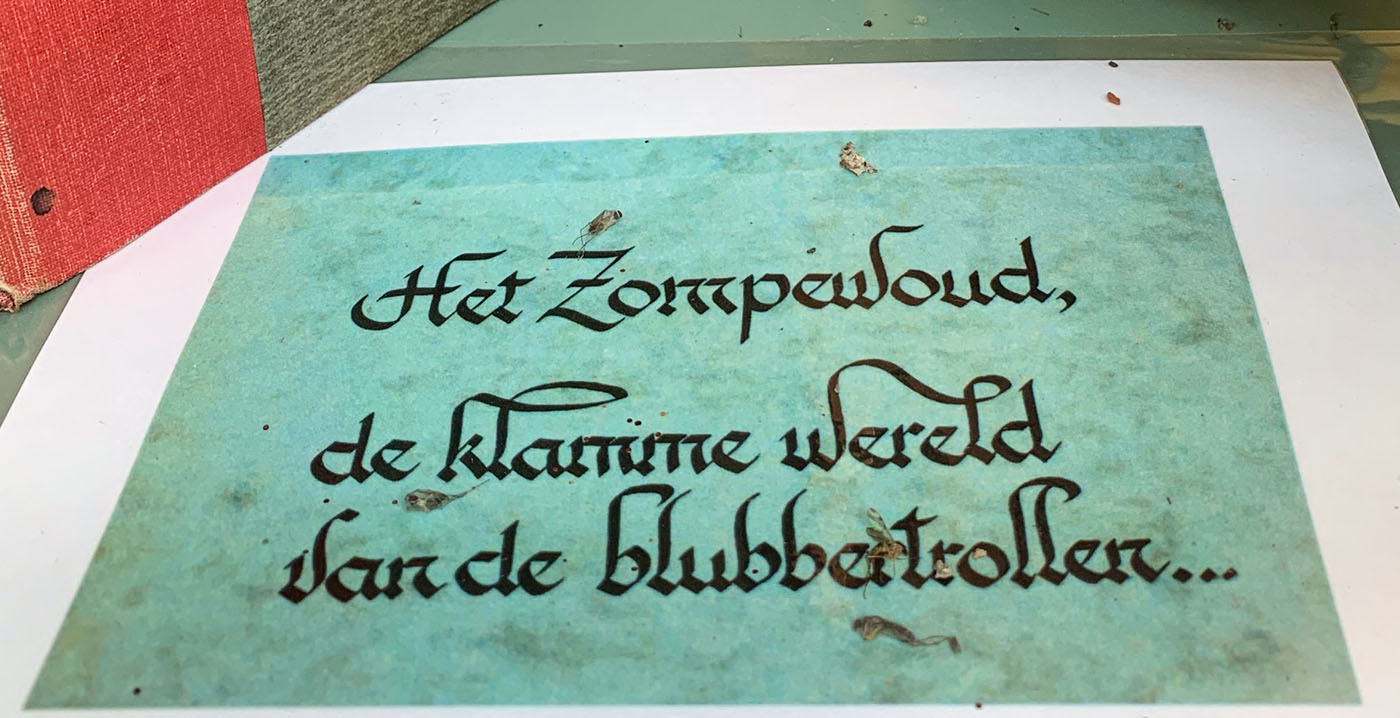 Het Zompewoud,
de klamme wereld
van de blubbertrollen...